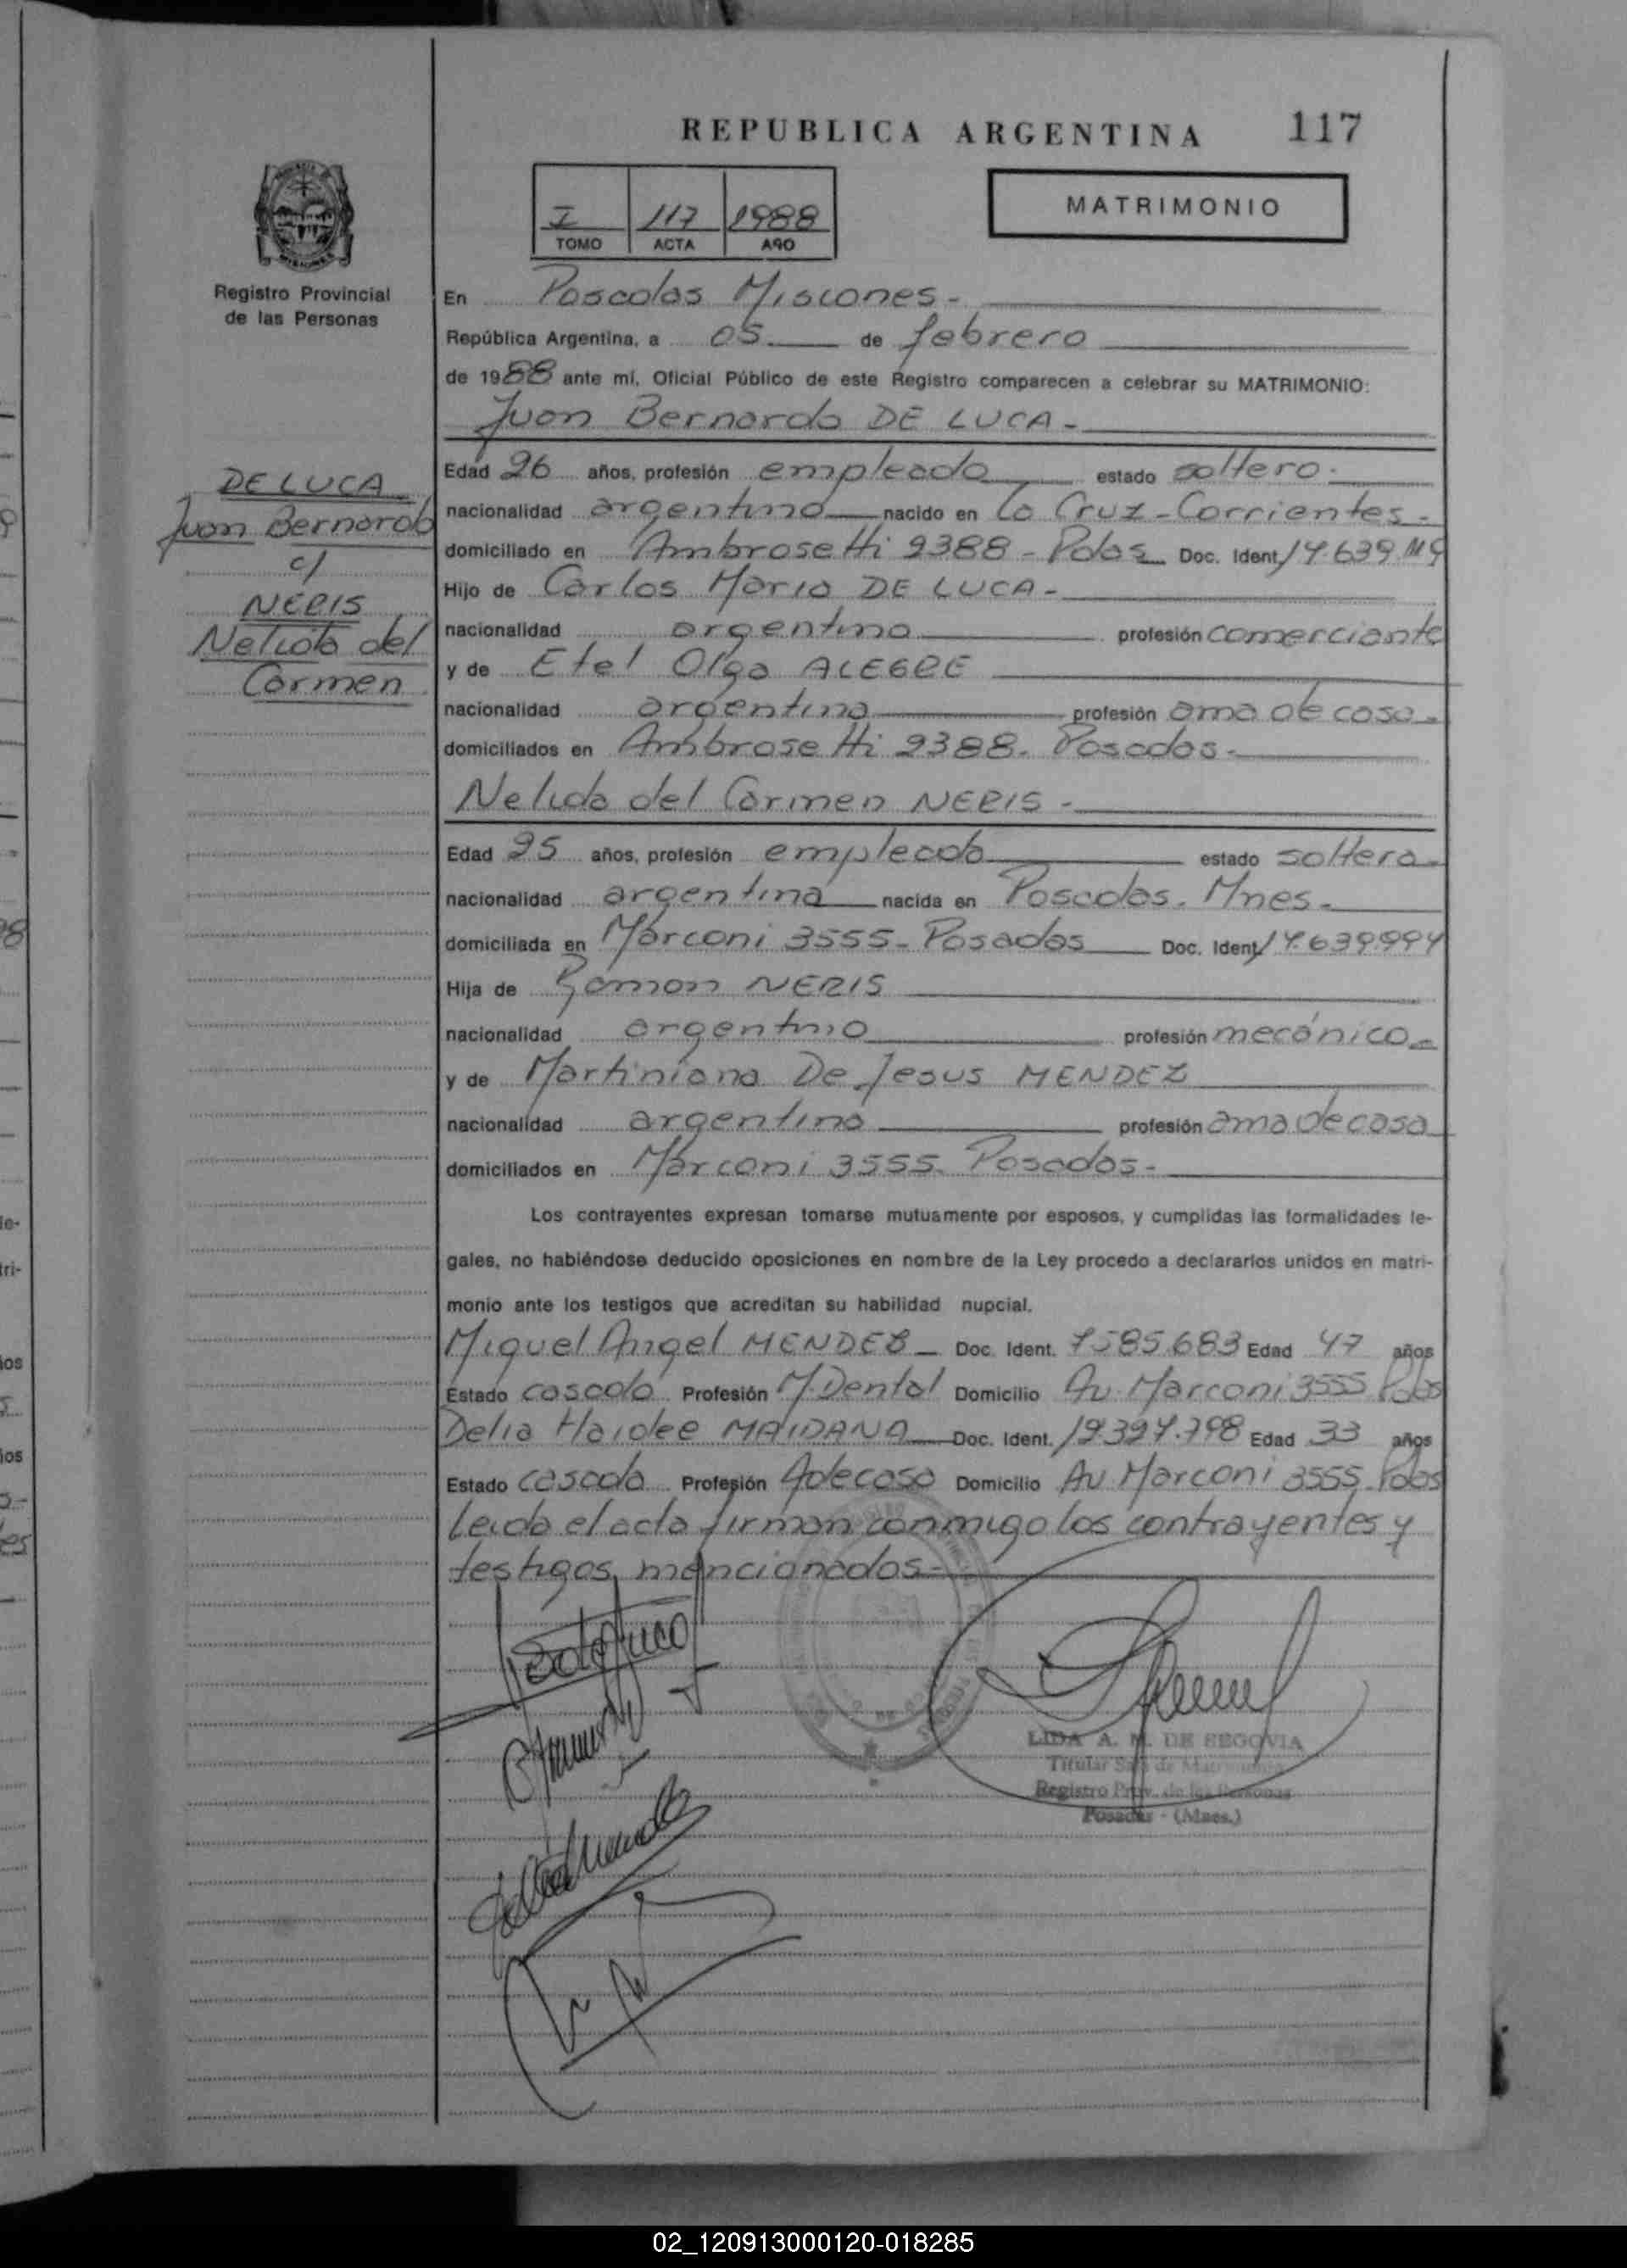 REPUBLICA ARGENTINA 117
MATRIMONIO
I 117 1988
TOMO ACTA AÑO
Registro Provincial
de las Personas
En Posadas Misiones -
República Argentina, a 05 de febrero
de 1988 ante mí, Oficial Público de este Registro comparecen a celebrar su MATRIMONIO:
Juan Bernardo DE LUCA -
DE LUCA
Juan Bernardo
c/
NERIS
Nelida del
Carmen
Edad 26 años, profesión empleado estado soltero.
nacionalidad argentino nacido en La Cruz - Corrientes -
domiciliado en Ambrosetti 2388 - Pdas Doc. Ident. 14.639.119
Hijo de Carlos Mario DE LUCA -
nacionalidad argentino profesión comerciante
y de Etel Olga ALEGRE
nacionalidad argentina profesión ama de casa -
domiciliados en Ambrosetti 2388 - Posadas -
Nelida del Carmen NERIS -
Edad 25 años, profesión empleada estado soltera -
nacionalidad argentina nacida en Posadas - Mnes -
domiciliada en Marconi 3555 - Posadas Doc. Ident. 14.639.994
Hija de Ramon NERIS
nacionalidad argentino profesión mecánico -
y de Martiniana De Jesus MENDEZ
nacionalidad argentina profesión ama de casa
domiciliados en Marconi 3555 Posadas -
Los contrayentes expresan tomarse mutuamente por esposos, y cumplidas las formalidades le-
gales, no habiéndose deducido oposiciones en nombre de la Ley procedo a declararlos unidos en matri-
monio ante los testigos que acreditan su habilidad nupcial.
Miguel Angel MENDEZ - Doc. Ident. 7585.683 Edad 47 años
Estado casado Profesión M. Dental Domicilio Av. Marconi 3555 Pdas
Delia Haidee MAIDANA Doc. Ident. Edad 33 años
Estado casada Profesión A de casa Domicilio Av Marconi 3555 Pdas
Leida el acta firman conmigo los contrayentes y
testigos mencionados -
LIDA A. M. DE SEGOVIA
Titular Sala de Matrimonio
Registro Prov. de las Personas
Posadas - (Mnes.)
02_120913000120-018285